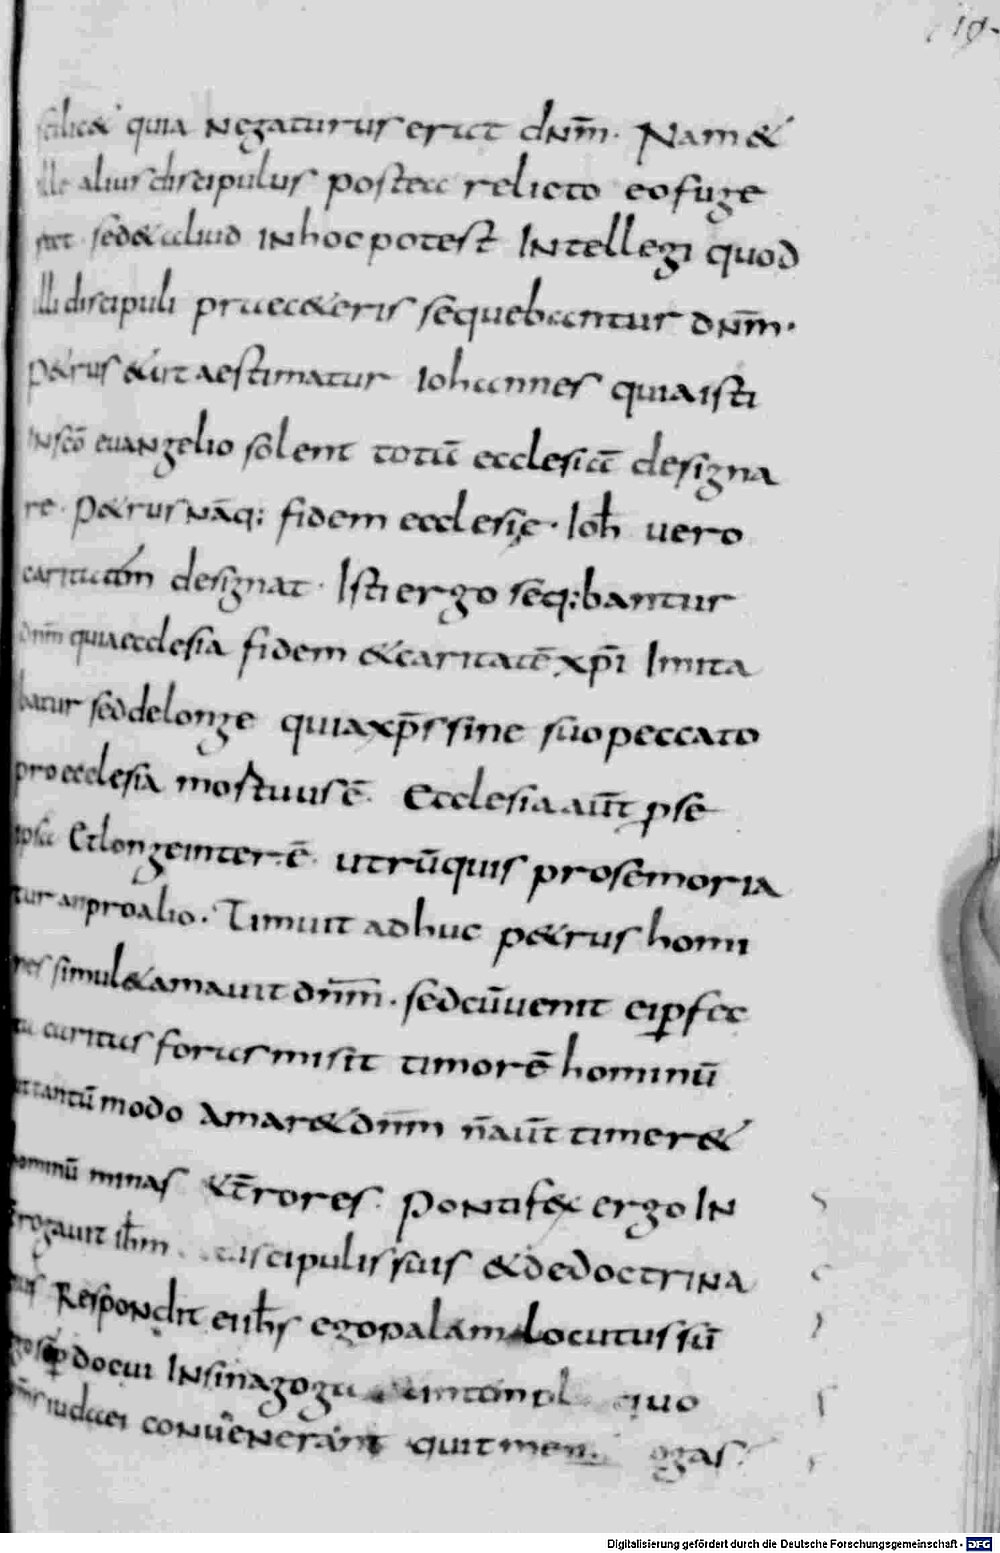 19.
scilic& quia negaturus erat dnm̄. Nam &
ille alius discipulus postea relicto eo fuge
ret. sed & aliud in hoc potest Intellegi quod
illi discipuli praec&eris sequebantur dnm̄.
P&rus & ut aestimatur Iohannes quia isti
In scō euangelio solent totū ecclesiā designa
re. P&rus nāq; fidem ecclesię. Ioh̄ uero
caritatem designat. Isti ergo seq;bantur
dnm̄ quia ecclesia fidem & caritatē xp̄i Imita
batur sed de longe quia xp̄s sine suo peccato
pro ecclesia mortuus ē. Ecclesia aūt p se
ipsa Et longe inter ē. utrū quis pro se moria
tur an pro alio. Timuit adhuc p&rus homi
nes simul & amauit dnm̄. sed cū uenit ei pfec
ta caritas foras misit timorē hominū
ut tantū modo amar& dnm̄ n̄ aūt timer&
hominū minas & t̄rores. Pontifex ergo In
rogauit ih̄m discipulis suis & de doctrina
eius Respondit ei ih̄s ego palam locutus sū
ego semp docui In sinagoga quo
om̄s iudaei conuenerant quit me n gas.
Digitalisierung gefördert durch die Deutsche Forschungsgemeinschaft - DFG